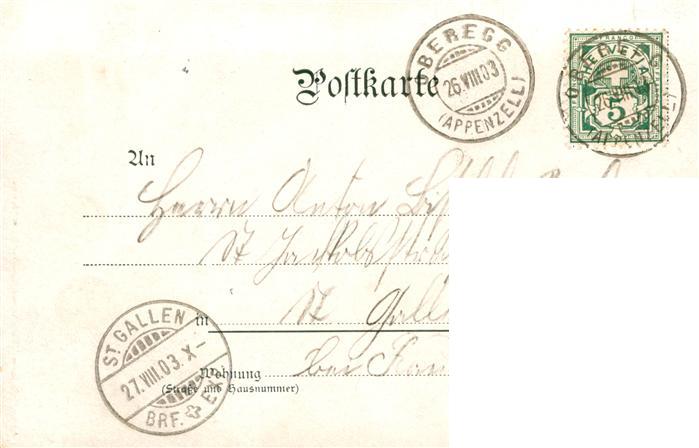 OBEREGG
26.VIII.03
(APPENZELL)
FRANCO
HELVETIA
5
Postkarte
An
Herrn Anton
St. Jakobstr
St. Gall
in
bei
Wohnung
(Straße und Hausnummer)
ST. GALLEN
27.VIII.03.X-
BRF. EX